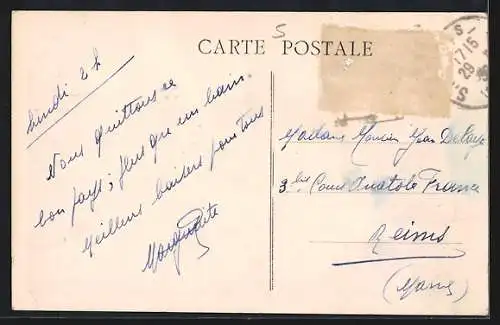 5
CARTE POSTALE
S
1715
29
S
Lundi 2 h
Nous quittons ce
bon pays; plus que un bain.
Meilleurs baisers pour tous
Marguerite
Madame Monsieur Jean
3 bis Cours Anatole France
Reims
(Marne)